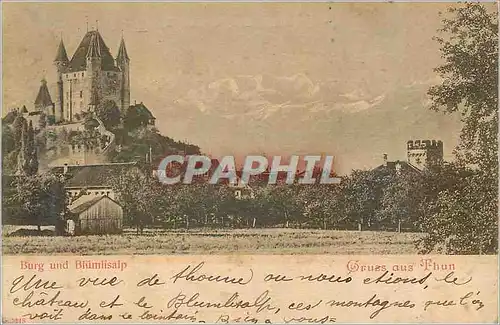 CPARPHIL
Burg und Blümlisalp
Gruss aus Thun
Une vue de thoune où nous étions, le
château, et le Blumlisalp, ces montagnes que l'on
voit dans le lointain - Bien à vous -